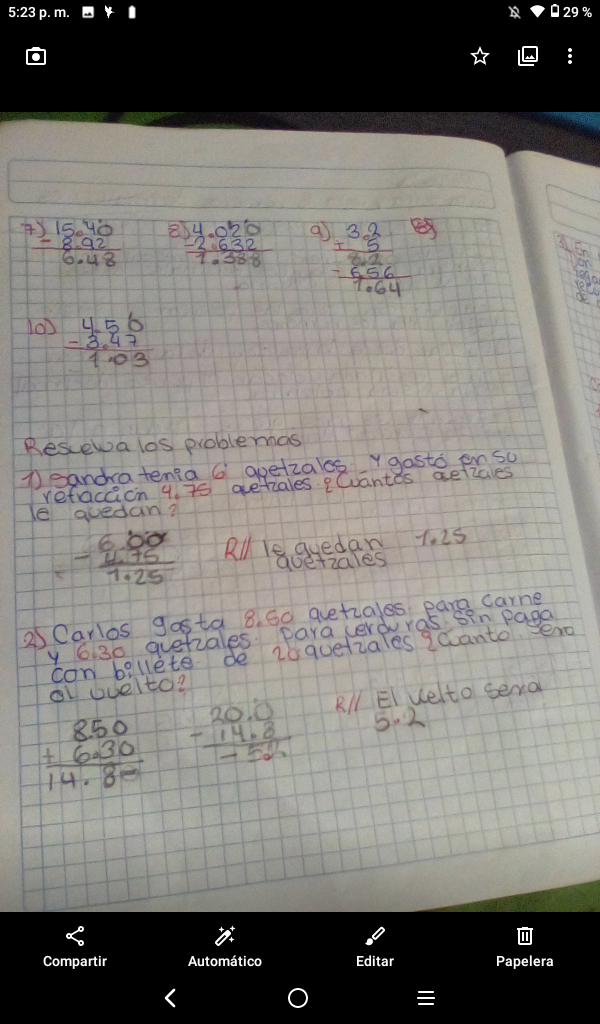 5:23 p. m.
29 %
7) 15.40
- 8.92
6.48
8) 4.020
-2.632
1.388
9) 3.2
+ 5
8.2
- 6.56
1.64
10) 4.50
- 3.47
1.03
Resuelva los problemas
1) Sandra tenia 6 quetzales y gastó en su
refacción 4.75 quetzales ¿Cuántos quetzales
le quedan?
6.00
- 4.75
1.25
R// le quedan 1.25
quetzales
2) Carlos gasta 8.50 quetzales para carne
y 6.30 quetzales para verduras sin paga
con billete de 20 quetzales ¿Cuanto sera
el vuelto?
8.50
+ 6.30
14.8
20.0
- 14.8
- 5.2
R// El vuelto sera
5.2
Compartir
Automático
Editar
Papelera